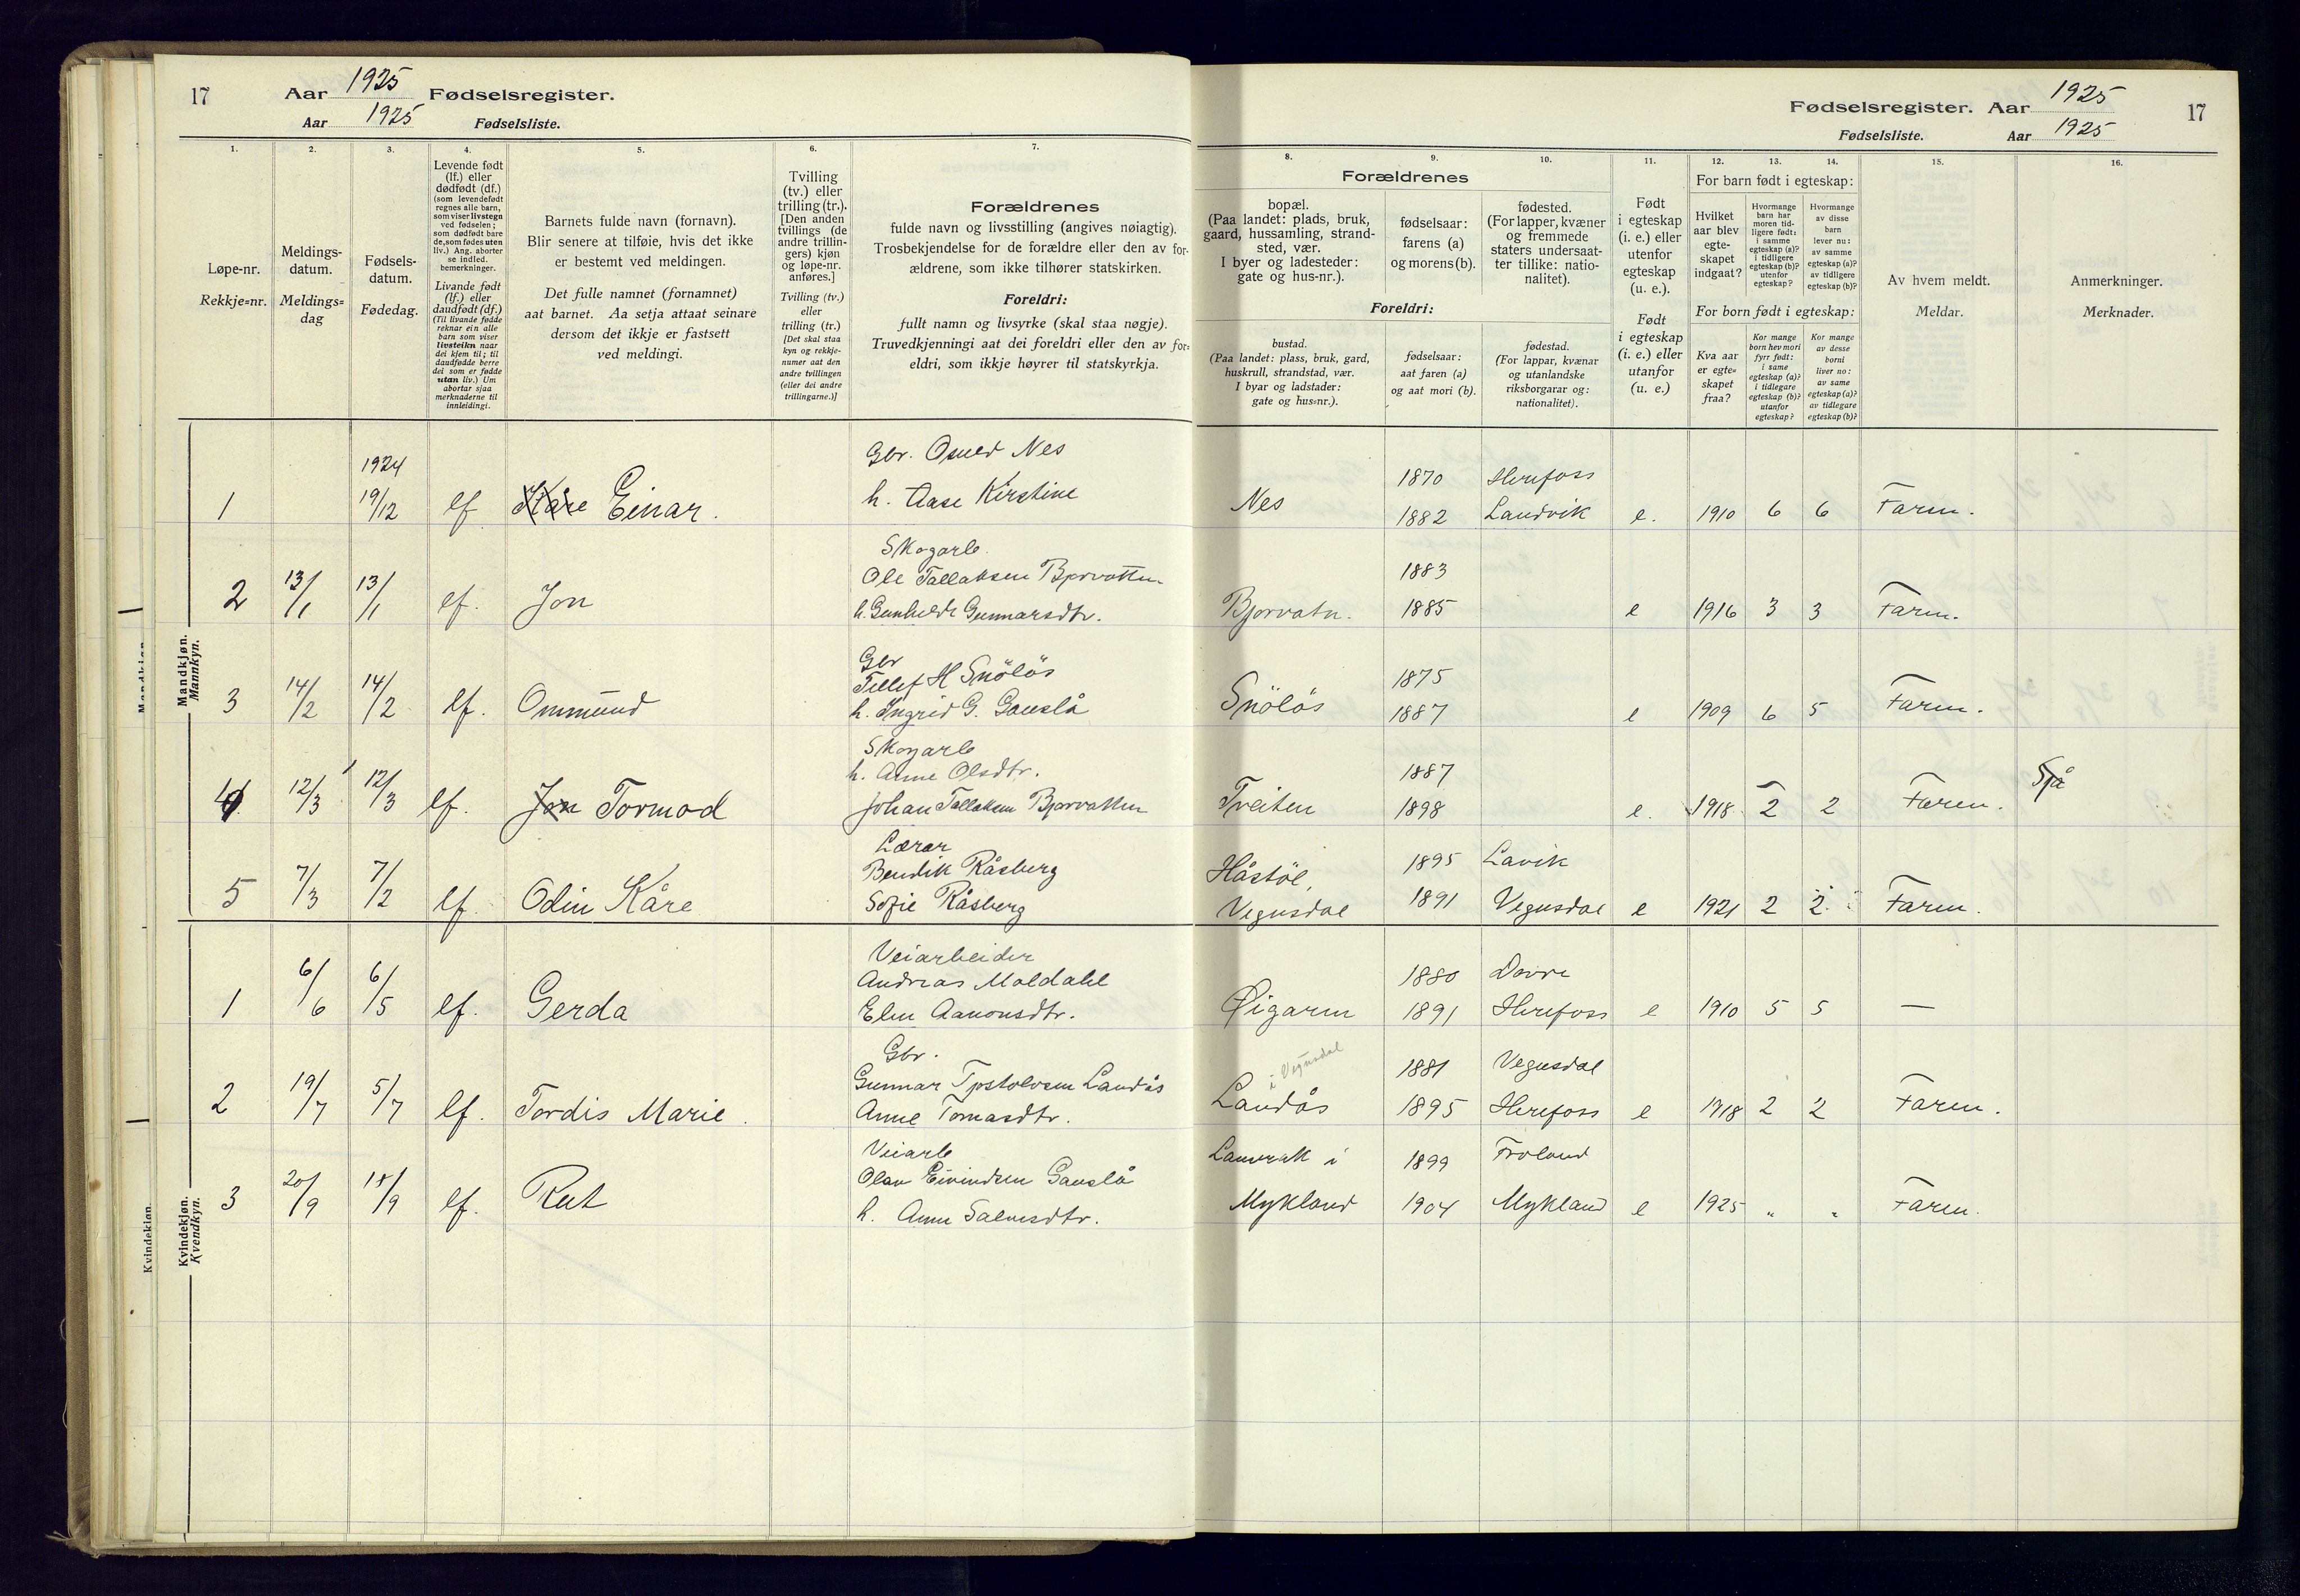 17
Aar 1925 Fødselsregister.
Aar 1925 Fødselsliste.
1.
2.
3.
4.
5.
6.
7.
Løpe-nr.
Rekkje=nr.
Meldings-
datum.
Meldings=
dag
Fødsels-
datum.
Fødedag.
Levende født
(lf.) eller
dødfødt (df.)
(som levendefødt
regnes alle barn,
som viser livstegn
ved fødselen;
som dødfødt bare
de, som fødes uten
liv.) Ang. aborter
se indled.
bemerkninger.
Livande født
(lf.) eller
daudfødt (df.)
(Til livande fødde
reknar ein alle
barn som viser
livsteikn naar
dei kjem til; til
daudfødde berre
dei som er fødde
utan liv.) Um
abortar sjaa
merknaderne til
innleidingi.
Barnets fulde navn (fornavn).
Blir senere at tilføie, hvis det ikke
er bestemt ved meldingen.
Det fulle namnet (fornamnet)
aat barnet. Aa setja attaat seinare
dersom det ikkje er fastsett
ved meldingi.
Tvilling
(tv.) eller
trilling (tr.).
[Den anden
tvillings (de
andre trillin-
gers) kjøn
og løpe-nr.
anføres.]
Tvilling (tv.)
eller
trilling (tr.)
[Det skal staa
kyn og rekkje-
numer aat den
andre tvillingen
(eller dei andre
trillingarne.)]
Forældrenes
fulde navn og livsstilling (angives nøiagtig).
Trosbekjendelse for de forældre eller den av for-
ældrene, som ikke tilhører statskirken.
Foreldri:
fullt namn og livsyrke (skal staa nøgje).
Truvedkjenningi aat dei foreldri eller den av for=
eldri, som ikkje høyrer til statskyrkja.
Mandkjøn.
Mannkyn.
1 1924 19/12 lf Kåre Einar.
Gbr. Osuld Nes
h. Aase Kirstine
2 13/1 13/1 lf. Jon
Skogarb.
Ole Tallaksen Bjorvatten
h. Gunhild Gunnarsdtr.
3 14/2 14/2 lf. Ommund
Gbr
Tellef H Snöløs
h. Ingrid G. Gauslå
4 12/3 12/3 lf. Jon Tormod
Skogarb
h. Anne Olsdtr.
Johan Tallaksen Bjorvatten
5 7/3 7/2 lf. Odin Kåre
Lærar
Bendik Råsberg
Sofie Råsberg
Kvindekjøn.
Kvendkyn.
1 6/6 6/5 lf. Gerda
Veiarbeider
Andreas Moldahl
Elen Aanonsdtr.
2 19/7 5/7 lf. Tordis Marie.
Gbr.
Gunnar Tjostolvsen Landås
Anne Tomasdtr.
3 20/9 18/9 lf. Rut
Veiarb
Olav Eivindsen Gauslå
h. Anna Salvesdtr.
Fødselsregister. Aar 1925
Fødselsliste. Aar 1925
17
8.
9.
10.
11.
12.
13.
14.
15.
16.
Forældrenes
bopæl.
(Paa landet: plads, bruk,
gaard, hussamling, strand-
sted, vær.
I byer og ladesteder:
gate og hus-nr.).
fødselsaar:
farens (a)
og morens (b).
fødested.
(For lapper, kvæner
og fremmede
staters undersaat-
ter tillike: natio-
nalitet).
Foreldri:
bustad.
(Paa landet: plass, bruk, gard,
huskrull, strandstad, vær.
I byar og ladstader:
gate og hus=nr.).
fødselsaar:
aat faren (a)
og aat mori (b).
fødestad.
(For lappar, kvænar
og utanlandske
riksborgarar og:
nationalitet).
Født
i egteskap
(i. e.) eller
utenfor
egteskap
(u. e.).
Født
i egteskap
(i. e.) eller
utanfor
(u. e.)
For barn født i egteskap:
Hvilket
aar blev
egte-
skapet
indgaat?
Hvormange
barn har
moren tid-
ligere født:
i samme
egteskap (a)?
i tidligere
egteskap (b)?
utenfor
egteskap?
Hvormange
av disse
barn
lever nu:
av samme
egteskap (a)?
av tidligere
egteskap (b)?
For born født i egteskap:
Kva aar
er egte=
skapet
fraa?
Kor mange
born hev mori
fyrr født:
i same
egteskap (a)?
i tidlegare
egteskap (b)?
utanfor
egteskap?
Kor mange
av desse
borni
liver no:
av same
egteskap (a)?
av tidlegare
egteskap (b)?
Av hvem meldt.
Meldar.
Anmerkninger.
Merknader.
Nes 1870 Herefoss
1882 Landvik e. 1910 6 6 Faren.
1883
Bjorvatn. 1885 e 1916 3 3 Faren.
1875
Snöløs 1887 e 1909 6 5 Faren.
1887
Treiten 1898 e. 1918 2 2 Faren. Sjå
Håstöl, 1895 Lavik
Vegusdal 1891 Vegusdal e 1921 2 2 Faren.
1880 Dovre
Øigaren 1891 Herefoss e 1910 5 5 —
i Vegusdal 1881 Vegusdal
Landås 1895 Herefoss e 1918 2 2 Faren.
i 1899 Froland
Mykland 1904 Mykland e 1925 " " Faren.